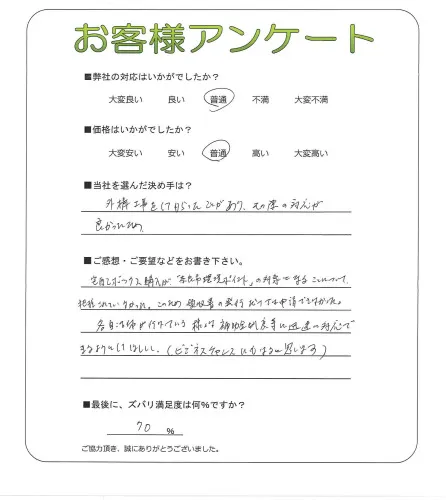 お客様アンケート
■弊社の対応はいかがでしたか?
大変良い 良い 普通 不満 大変不満
■価格はいかがでしたか?
大変安い 安い 普通 高い 大変高い
■当社を選んだ決め手は?
外構工事をして頂いたことがあり、その際の対応が
良かったため
■ご感想・ご要望などをお書き下さい。
宅配ボックス購入が、「環境ポイント」の対象となることについて、
把握されていなかった。このため領収書の発行だけでは申請できなかった。
各自治体が行っている様々な補助金制度等に迅速に対応で
きるようにしてほしい。(ビジネスチャンスにもなると思います)
■最後に、ズバリ満足度は何%ですか?
70 %
ご協力頂き、誠にありがとうございました。